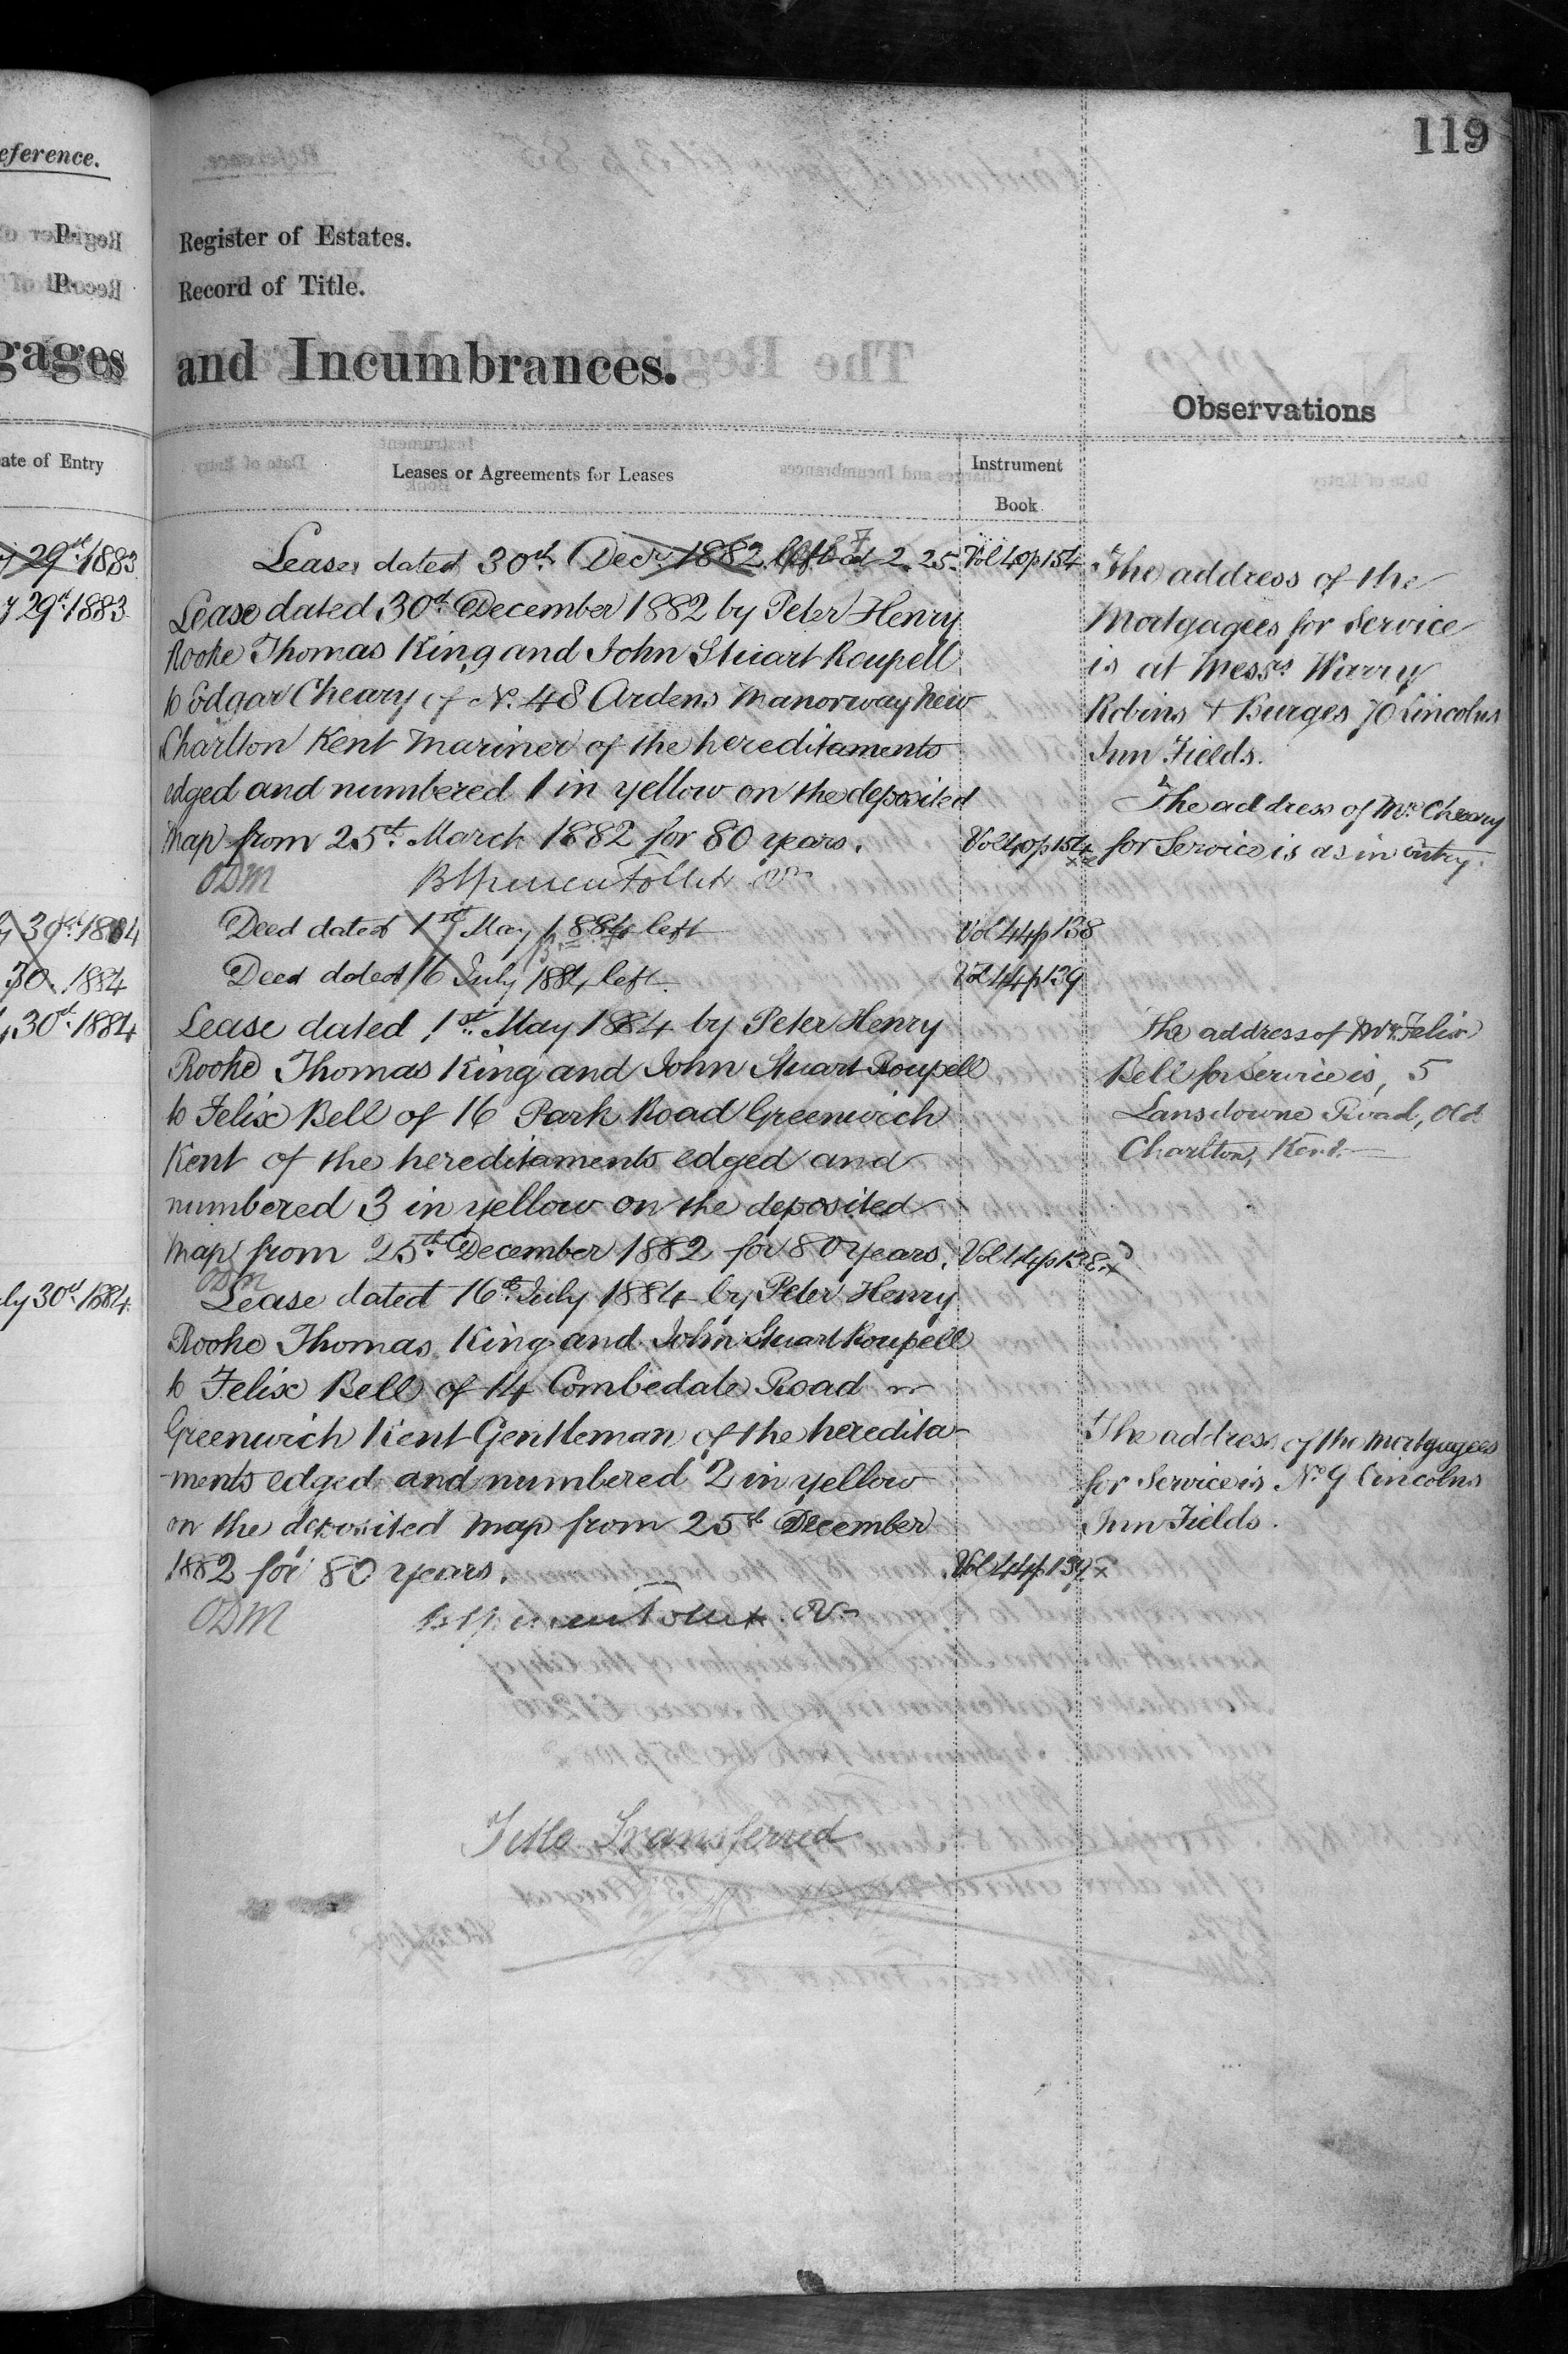 119
eference.
Register of Estates.
Record of Title.
gages
and Incumbrances.
Observations
ate of Entry
Leases or Agreements for Leases
Instrument
Book
29th 1883
Lease dated 30th Decr. 1882 left at 2.25
Vol 40 p 154
29th 1883
Lease dated 30th December 1882 by Peter Henry
Rooke Thomas King and John Stuart Roupell
to Edgar Cheary of No. 48 Ardens Manorway New
Charlton Kent Mariner of the hereditaments
edged and numbered 1 in yellow on the deposited
map from 25th March 1882 for 80 years.
Vol 40 p 154
ODM
The address of the
Mortgagees for Service
is at Messrs Warry
Robins & Burges 70 Lincolns
Inn Fields.
The address of Mr. Cheary
for Service is as in entry.
30th 1884
Deed dated 1st May 1884 left
Vol 44 p 138
30. 1884
Deed dated 16 July 1884 left.
Vol 44 p 139
30th 1884
Lease dated 1st May 1884 by Peter Henry
Rooke Thomas King and John Stuart Roupell
to Felix Bell of 16 Park Road Greenwich
Kent of the hereditaments edged and
numbered 3 in yellow on the deposited
map from 25th December 1882 for 80 years.
Vol 44 p 138
ODM
The address of Mr. Felix
Bell for Service is, 5
Lansdowne Road, Old
Charlton, Kent.
ly 30th 1884
Lease dated 16th July 1884 by Peter Henry
Rooke Thomas King and John Stuart Roupell
to Felix Bell of 14 Combedale Road
Greenwich Kent Gentleman of the heredita-
-ments edged and numbered 2 in yellow
on the deposited map from 25th December
1882 for 80 years.
Vol 44 p 139
ODM
The address of the mortgagees
for Service is No. 9 Lincolns
Inn Fields.
Title Transferred